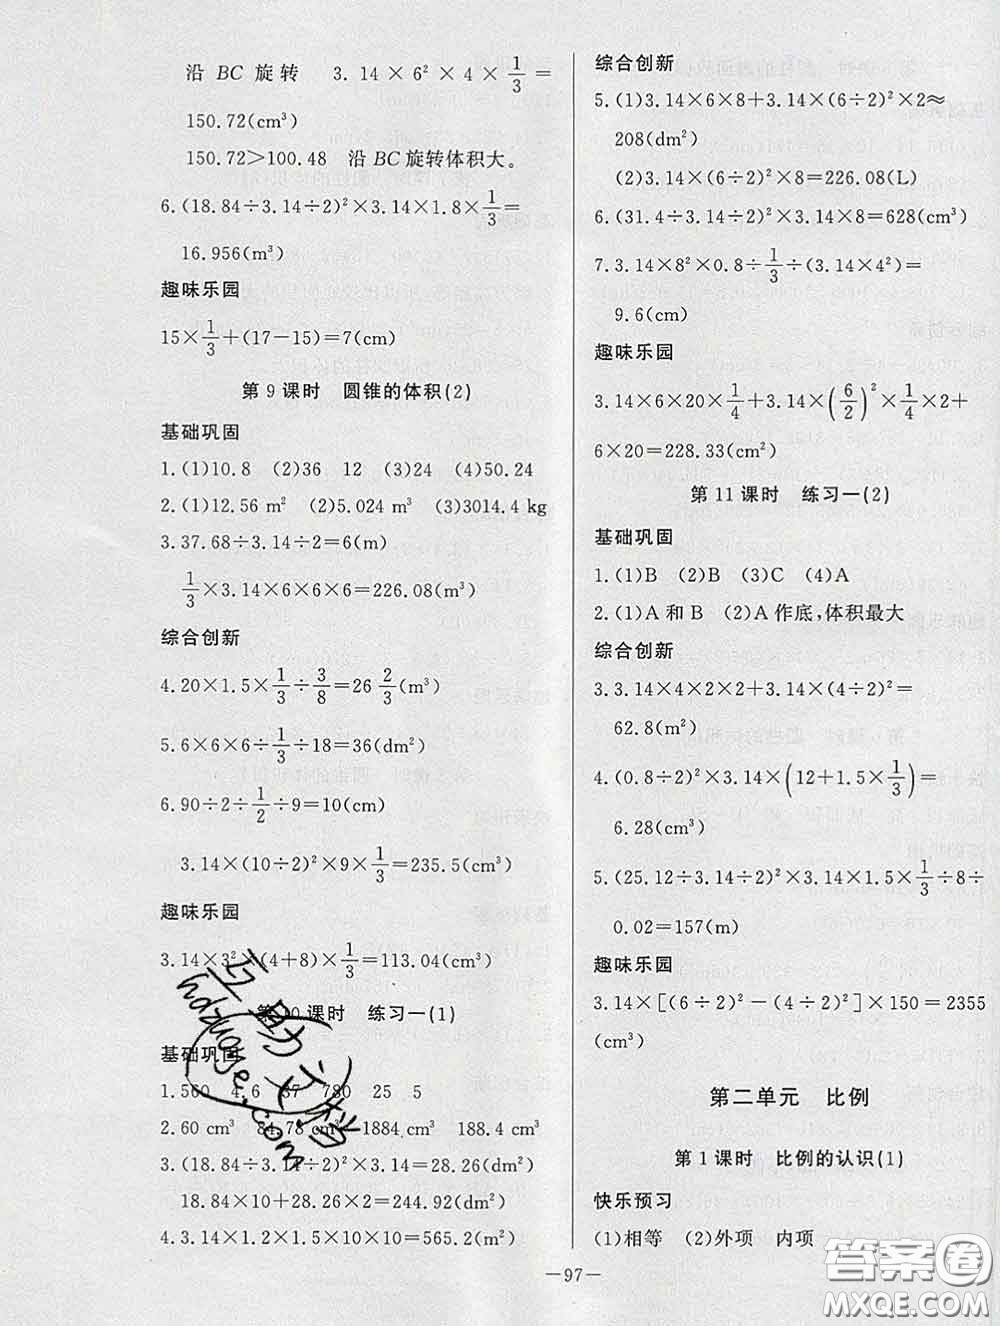 沿 BC 旋转　3.14×6²×4×1/3=
150.72(cm³)
150.72>100.48　沿 BC 旋转体积大。
6.(18.84÷3.14÷2)²×3.14×1.8×1/3=
16.956(m³)
趣味乐园
15×1/3+(17-15)=7(cm)
第 9 课时　圆锥的体积(2)
基础巩固
1.(1)10.8　(2)36　12　(3)24　(4)50.24
2.(1)12.56 m²　(2)5.024 m³　(3)3014.4 kg
3.37.68÷3.14÷2=6(m)
1/3×3.14×6×6×6=226.08(m³)
综合创新
4.20×1.5×1/3÷3/8=26 2/3(m³)
5.6×6×6÷1/3÷18=36(dm²)
6.90÷2÷1/2÷9=10(cm)
3.14×(10÷2)²×9×1/3=235.5(cm³)
趣味乐园
3.14×3²×(4+8)×1/3=113.04(cm³)
第 10 课时　练习一(1)
基础巩固
1.560　4.6　37　780　25　5
2.60 cm³　84.78 cm³　1884 cm³　188.4 cm³
3.(18.84÷3.14÷2)²×3.14=28.26(dm²)
18.84×10+28.26×2=244.92(dm²)
4.3.14×1.2×1.5×10×10=565.2(m²)
综合创新
5.(1)3.14×6×8+3.14×(6÷2)²×2≈
208(dm²)
(2)3.14×(6÷2)²×8=226.08(L)
6.(31.4÷3.14÷2)²×3.14×8=628(cm³)
7.3.14×8²×0.8÷1/3÷(3.14×4²)=
9.6(cm)
趣味乐园
3.14×6×20×1/4+3.14×(6/2)²×1/4×2+
6×20=228.33(cm²)
第 11 课时　练习一(2)
基础巩固
1.(1)B　(2)B　(3)C　(4)A
2.(1)A 和 B　(2)A 作底,体积最大
综合创新
3.3.14×4×2×2+3.14×(4÷2)²=
62.8(m²)
4.(0.8÷2)²×3.14×(12+1.5×1/3)=
6.28(cm³)
5.(25.12÷3.14÷2)²×3.14×1.5×1/3÷8÷
0.02=157(m)
趣味乐园
3.14×[(6÷2)²-(4÷2)²]×150=2355
(cm³)
第二单元　比例
第 1 课时　比例的认识(1)
快乐预习
(1)相等　(2)外项　内项
—97—
互助文档
hdzuoye.com
答案圈
MXQE.COM